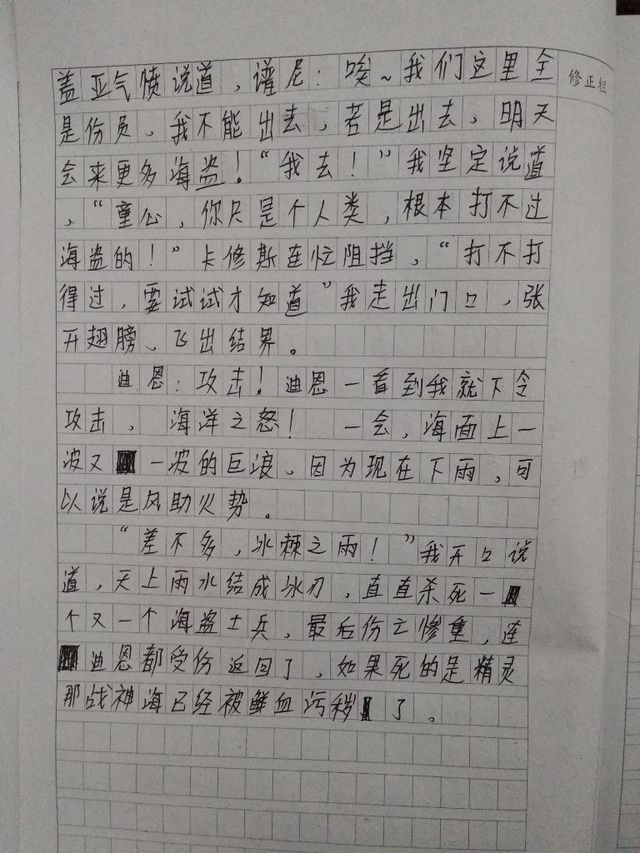 盖亚气愤说道，谱尼：唉~我们这里全
修正栏
是伤员，我不能出去，若是出去，明天
会来更多海盗！“我去！”我坚定说道
，“童心，你只是个人类，根本打不过
海盗的！”卡修斯在忙阻挡，“打不打
得过，要试试才知道”我走出门口，张
开翅膀、飞出结界。
迪恩：攻击！迪恩一看到我就下令
攻击，海洋之怒！一会，海面上一
波又一波的巨浪、因为现在下雨，可
以说是风助火势。
“差不多，冰棘之雨！”我开口说
道，天上雨水结成冰刃，直直杀死一
个又一个海盗士兵，最后伤亡惨重，连
迪恩都受伤返回了，如果死的是精灵
那战神海已经被鲜血污秽了。